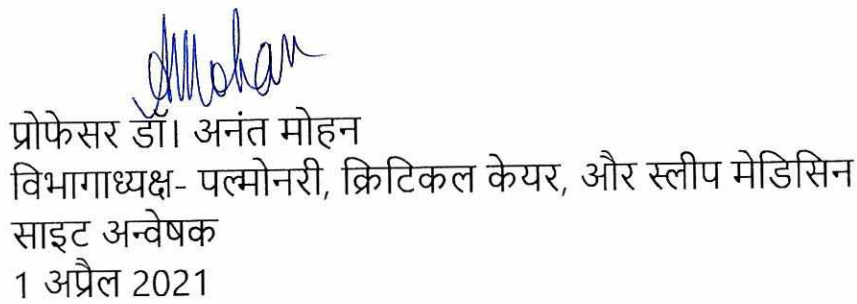 AMohan
प्रोफेसर डॉ। अनंत मोहन
विभागाध्यक्ष- पल्मोनरी, क्रिटिकल केयर, और स्लीप मेडिसिन
साइट अन्वेषक
1 अप्रैल 2021